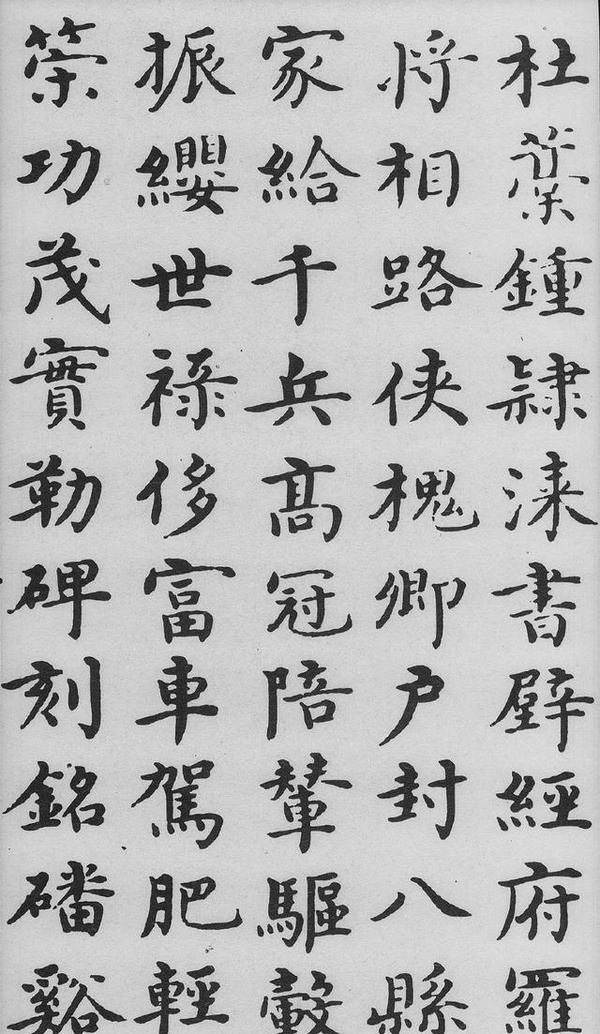 杜藁鍾隸漆書壁經府羅
將相路俠槐卿户封八縣
家給千兵髙冠陪輦驅轂
振纓世禄侈富車駕肥輕
策功茂實勒碑刻銘磻谿